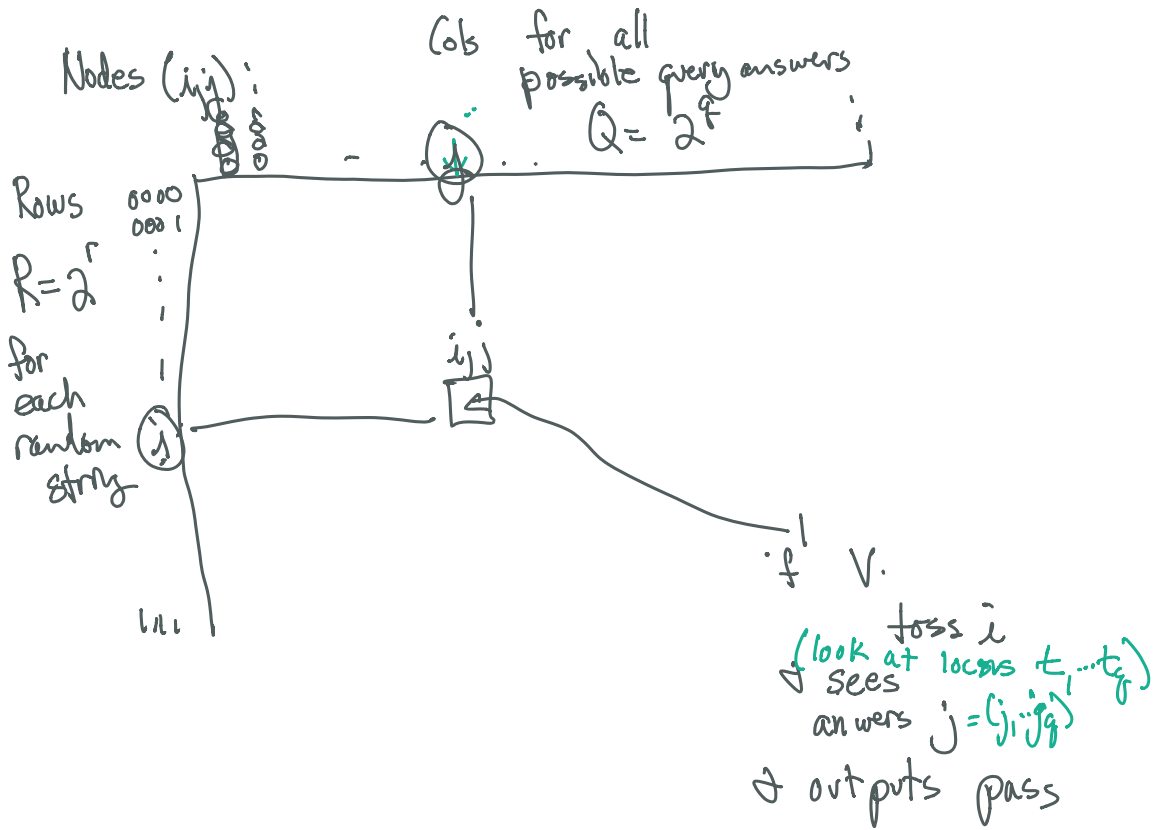 Cols for all
possible query answers
Q = 2^q
Nodes (i,j)
Rows 0000
0001
R = 2^r
for
each
random
string
i,j
1111
if V
toss i
(look at locns t1...tq)
& sees
anwers j = (j1...jq)
& outputs pass